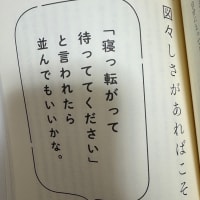 図々しさがあればこそ
「寝っ転がって
待っててください」
と言われたら
並んでもいいかな。